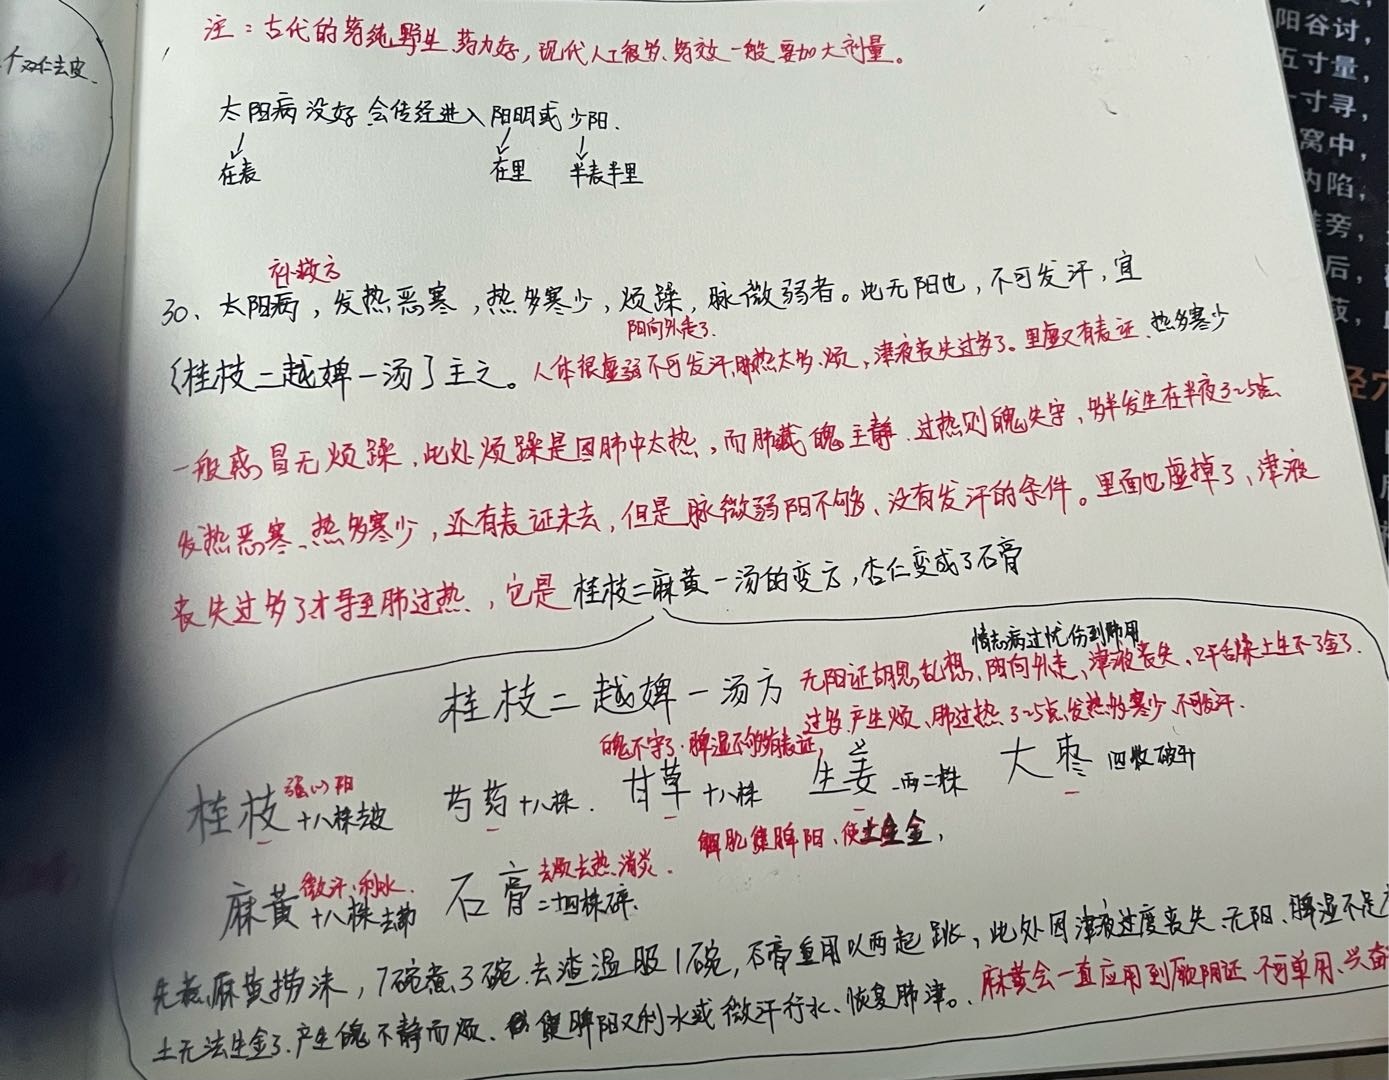 个 对仁去皮.
注：古代的药纯野生 药力好，现代人工很多、药效一般 要加大剂量。
太阳病 没好 会传经进入 阳明或 少阳.
在表 在里 半表半里
补救方
30、太阳病，发热恶寒，热多寒少，烦躁，脉微弱者。此无阳也，不可发汗，宜
阳向外走了.
〔桂枝二越婢一汤〕主之。人体很虚弱不可发汗,肺热太多、烦，津液丧失过多了。里虚又有表证、热多寒少
一般感冒无烦躁，此处烦躁是因肺中太热，而肺藏魄主静.过热则魄失守，多半发生在半夜3~5点
发热恶寒、热多寒少，还有表证未去，但是脉微弱阳不够、没有发汗的条件。里面也虚掉了、津液
丧失过多了才导至肺过热.，它是 桂枝二麻黄一汤的变方，杏仁变成了石膏
情志病过忧伤到肺用
桂枝二越婢一汤方 无阳证胡思乱想、阳向外走、津液丧失、土生不了金了.
过多产生烦、肺过热 3~5点发热多寒少.不可发汗.
魄不守了.脾湿不够多有表证,
桂枝 强心阳 十八株去皮 芍药十八株. 甘草十八株 生姜 一两二株 大枣 四枚破开
解肌健脾阳、使土生金，
麻黄 微汗、利水. 十八株去节 石膏 去烦去热、消炎. 二十四株碎.
先煮麻黄捞沫，7碗煮3碗.去渣温服1碗，石膏重用以两起跳，此处因津液过度丧失.无阳、脾湿不足
土无法生金了.产生魄不静而烦. 健脾阳又利水或微汗行水、恢复肺津。.麻黄会一直应用到厥阴证.不可单用、兴奋
阳谷讨，
五寸量，
一寸寻，
窝中，
内陷，
旁，
后，
经穴